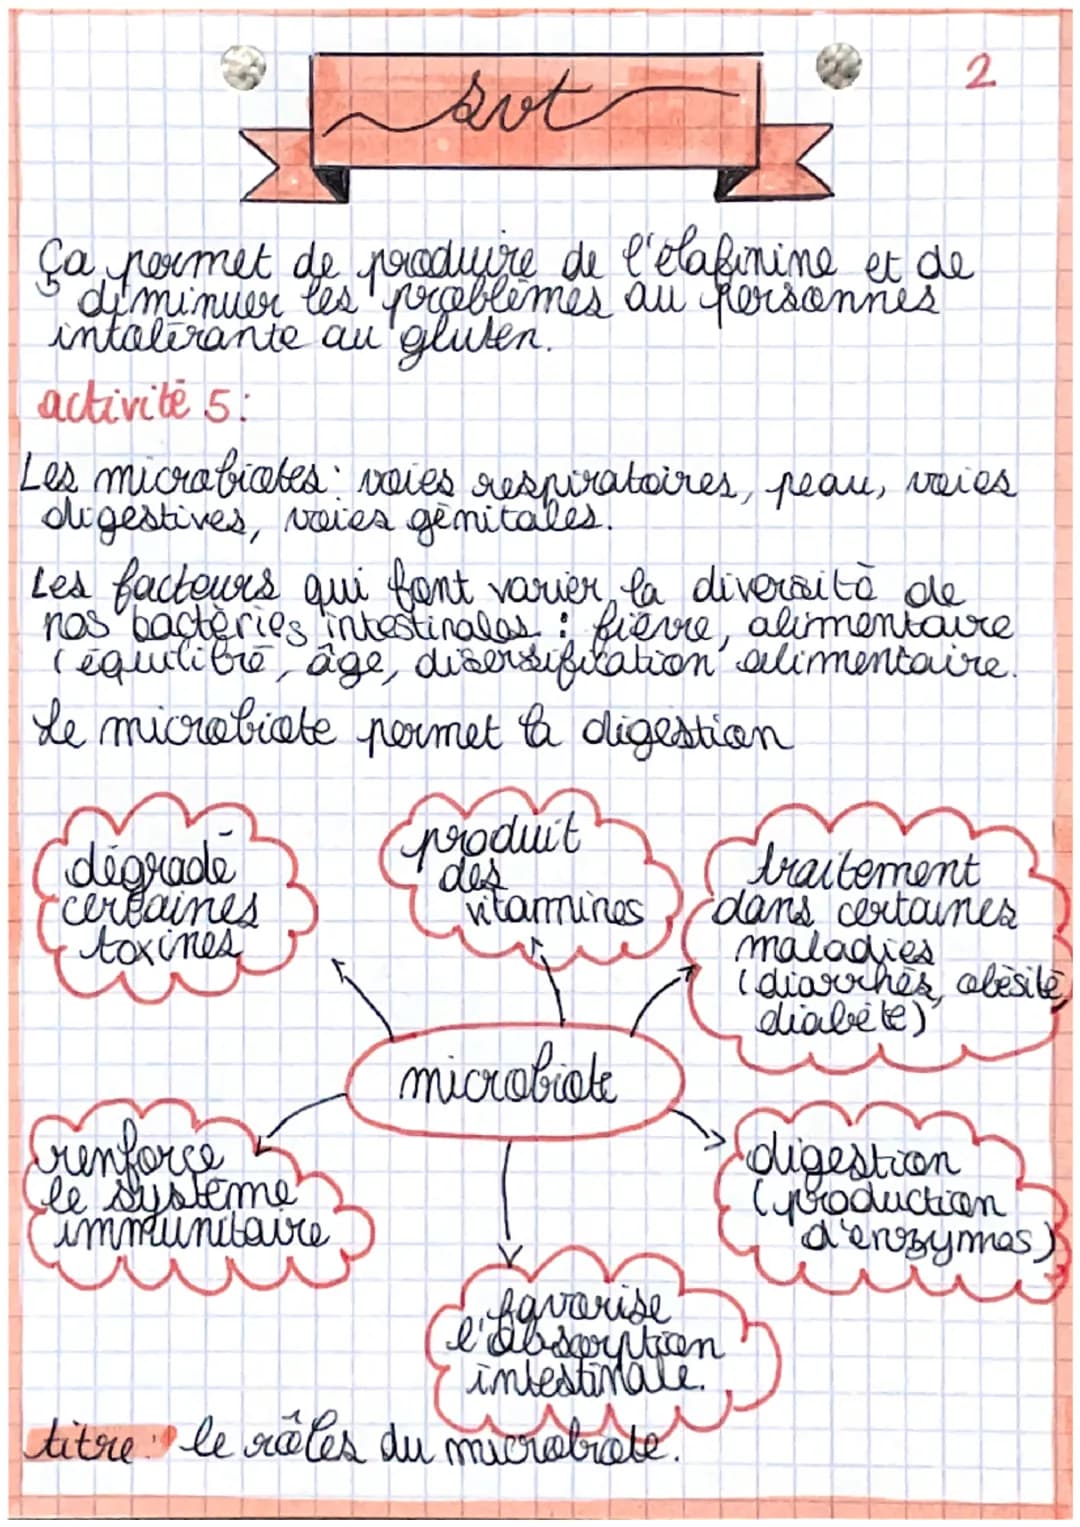 svt
2
Ça permet de produire de l'élafinine et de
diminuer les problèmes au personnes
intolérante au gluten.
activité 5:
Les microbiotes : voies respiratoires, peau, voies
digestives, voies génitales.
Les facteurs qui font varier la diversité de
nos bactéries intestinales : fièvre, alimentaire
(équilibré, âge, disersification alimentaire.
Le microbiote permet la digestion
dégradé
certaines
toxines
produit
des
vitamines
traitement
dans certaines
maladies
(diarrhés, obésité,
diabète)
microbiote
renforce
le système
immunitaire
digestion
(production
d'enzymes)
favorise
l'absorption
intestinale.
titre : le rôles du microbiote.